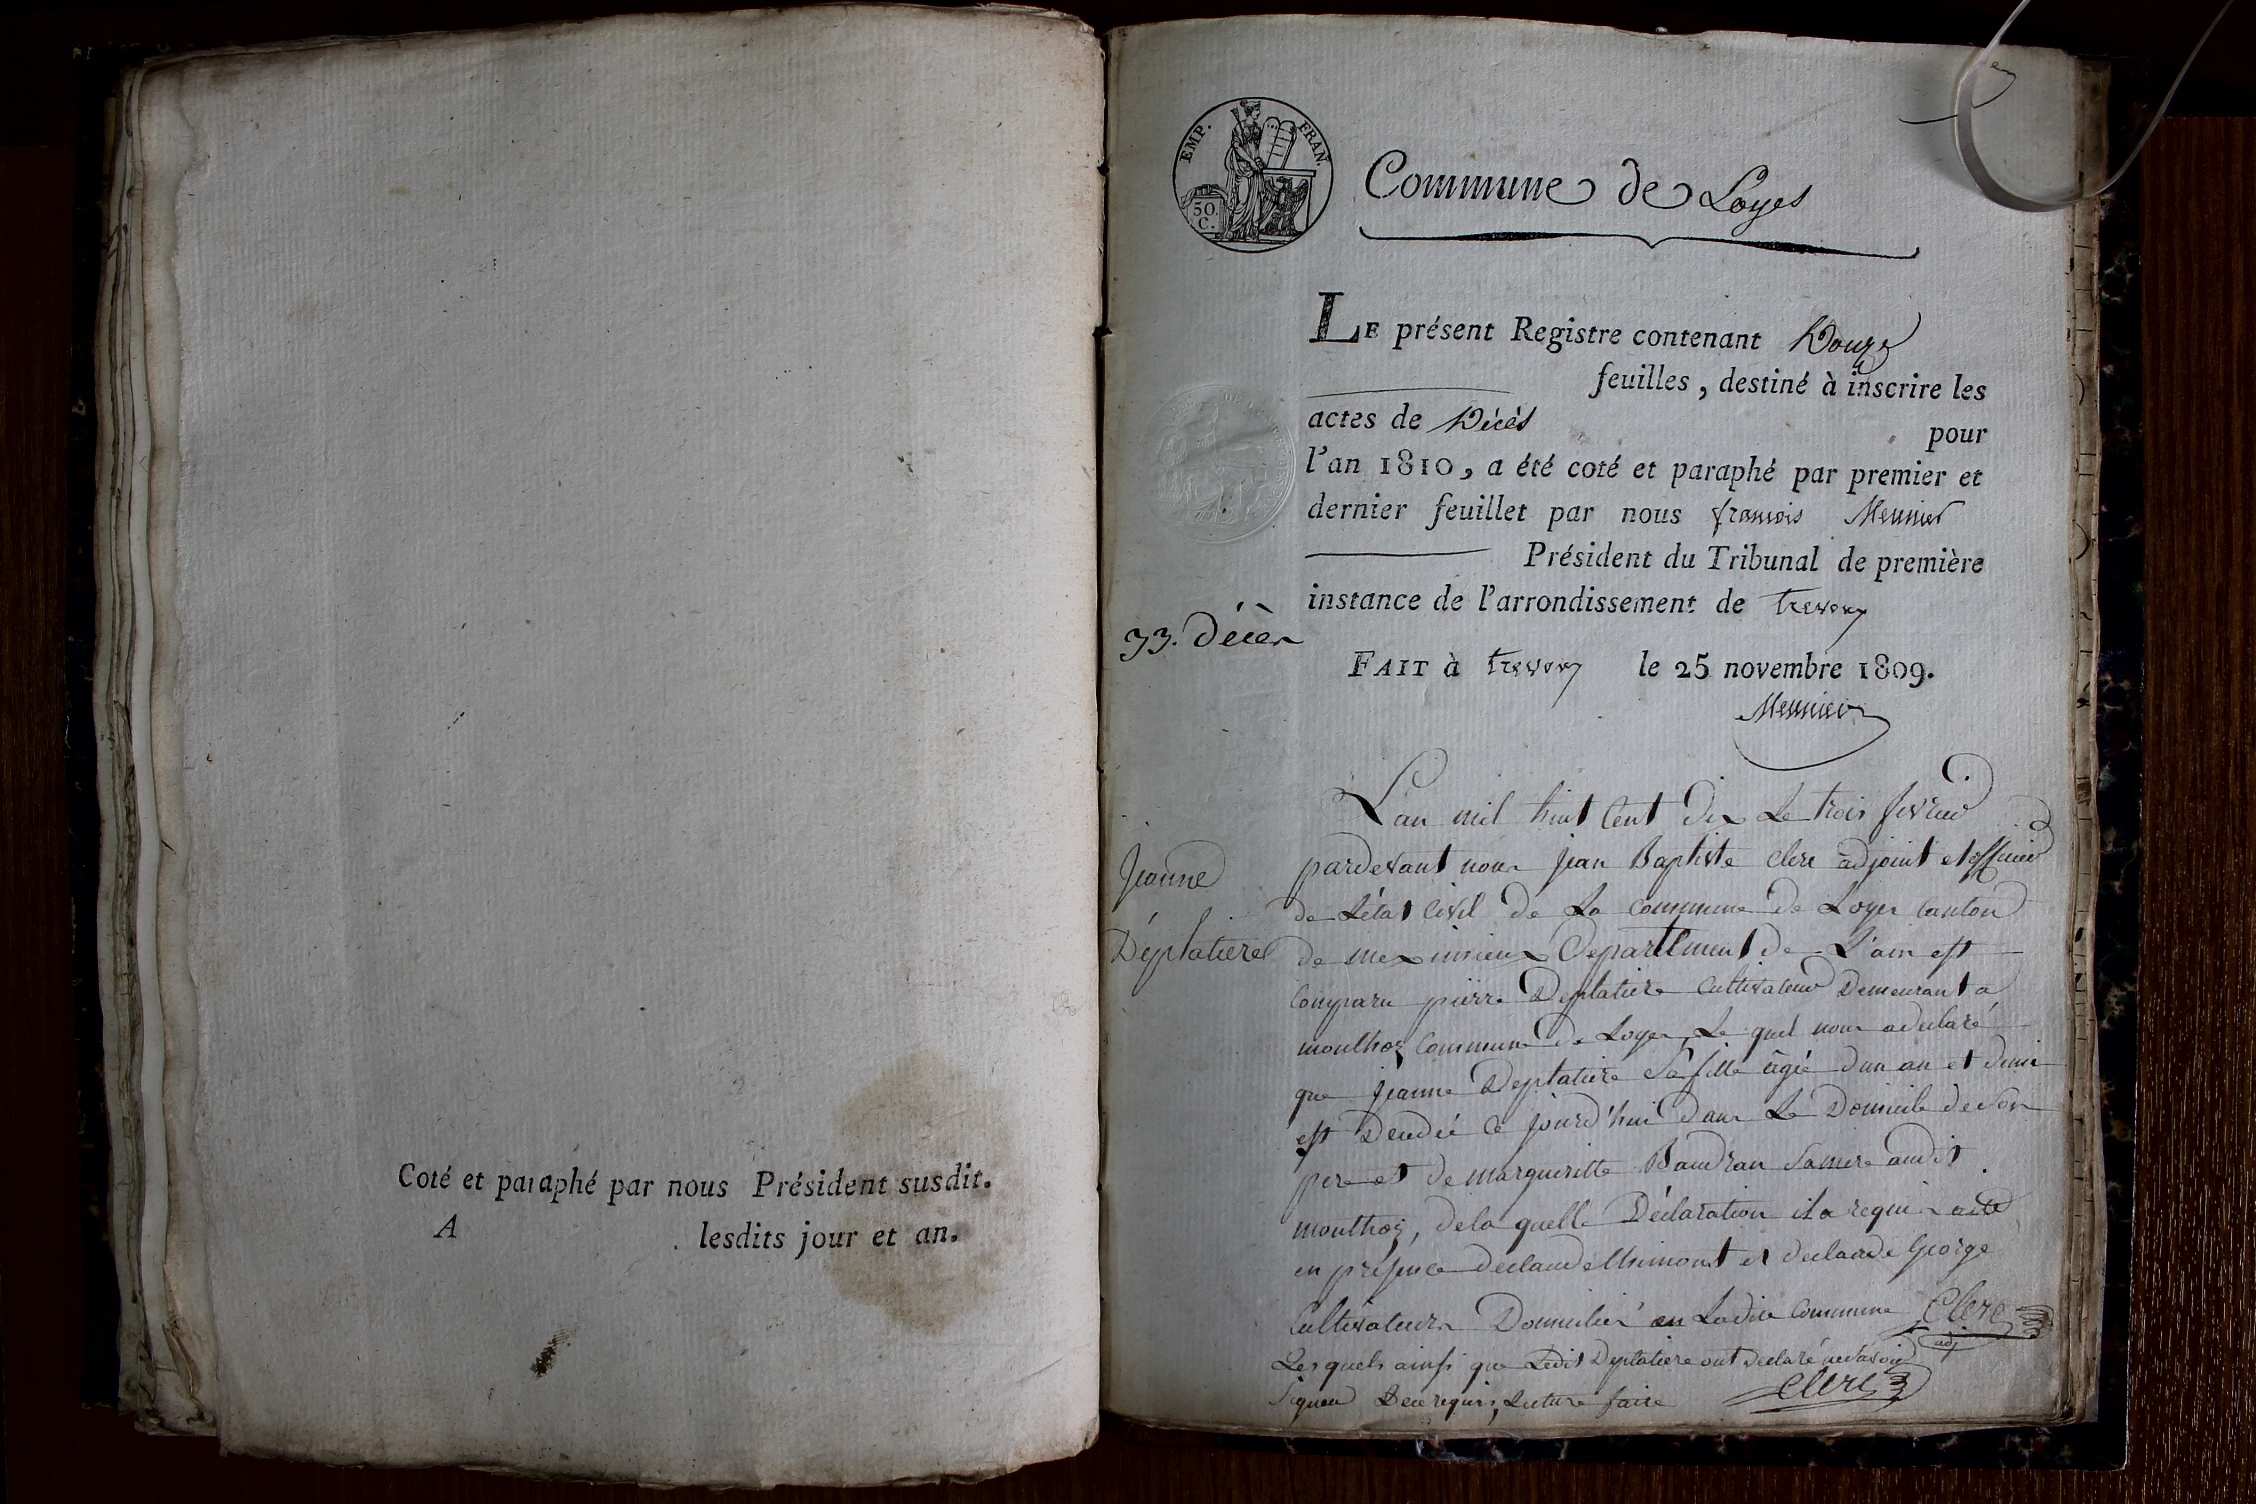 Coté et paraphé par nous Président susdit.
A lesdits jour et an.
EMP. FRAN.
50.
C.
Commune de Loyes
LE présent Registre contenant Douze
feuilles, destiné à inscrire les
actes de Décès pour
l'an 1810, a été coté et paraphé par premier et
dernier feuillet par nous françois Meunier
Président du Tribunal de première
instance de l'arrondissement de trevoux
33. Décès
FAIT à trevoux le 25 novembre 1809.
Meunier
Jeanne
Déplatiere
L'an mil huit Cent Dix Le trois fevrier
pardevant nous jean Baptiste clerc adjoint et officier
de L'état Civil de La commune de Loyes canton
de meximieux Departement de L'ain est
Comparu pierre Deplatiere Cultivateur Demeurant a
monthoz Commune de Loyes, Le quel nous a declaré
que jeanne Deplatiere Sa fille âgée d'un an et demi
est Decedée Ce jourd'hui dans Le Domicile de Son
pere et de margueritte Baudran Sa mere audit
monthoz, de la quelle Déclaration il a requis acte
en présence de claude et de claude George
Cultivateurs Domiciliés en Ladite Commune Clerc
adj
Les quels ainsi que Ledit Deplatiere ont declaré ne Savoir
Signer De ce requis, Lecture faite Clerc